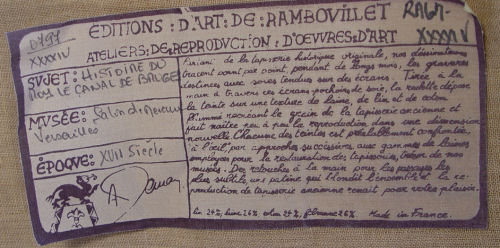 D797
XXXXIV
ÉDITIONS : D'ART : DE : RAMBOUILLET
ATELIERS : DE : REPRODUCTION : D'OEUVRES : D'ART
SUJET : HISTOIRE DU
MUSÉE : Salon de
Versailles
ÉPOQUE : XVII Siècle
de la tapisserie historique originale, nos dessinateurs
tracent point par point, pendant de longs mois, les gravures
destinées aux soies tendues sur des écrans. Tirée à la
main à travers ces écrans pochoirs de soie, la raclette dépose
la teinte sur une texture de laine, de lin et de coton
recréant le grain de la tapisserie ancienne et
fait naître peu à peu la reproduction dans une dimension
nouvelle. Chacune des teintes est préalablement confrontée,
à l'oeil, par approches successives aux gammes de laines
employées pour la restauration des tapisseries, trésor de nos
musées. Des retouches à la main pour les passages les
plus subtils, une patine qui blondit l'ensemble et la re-
production de tapisserie ancienne renaît pour votre plaisir.
lin 24%, laine 26% coton 24%, 26% Made in France.